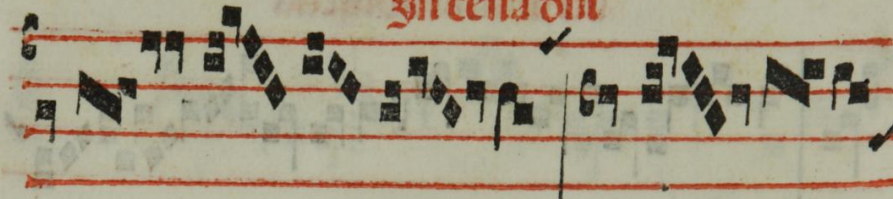 In cena dni